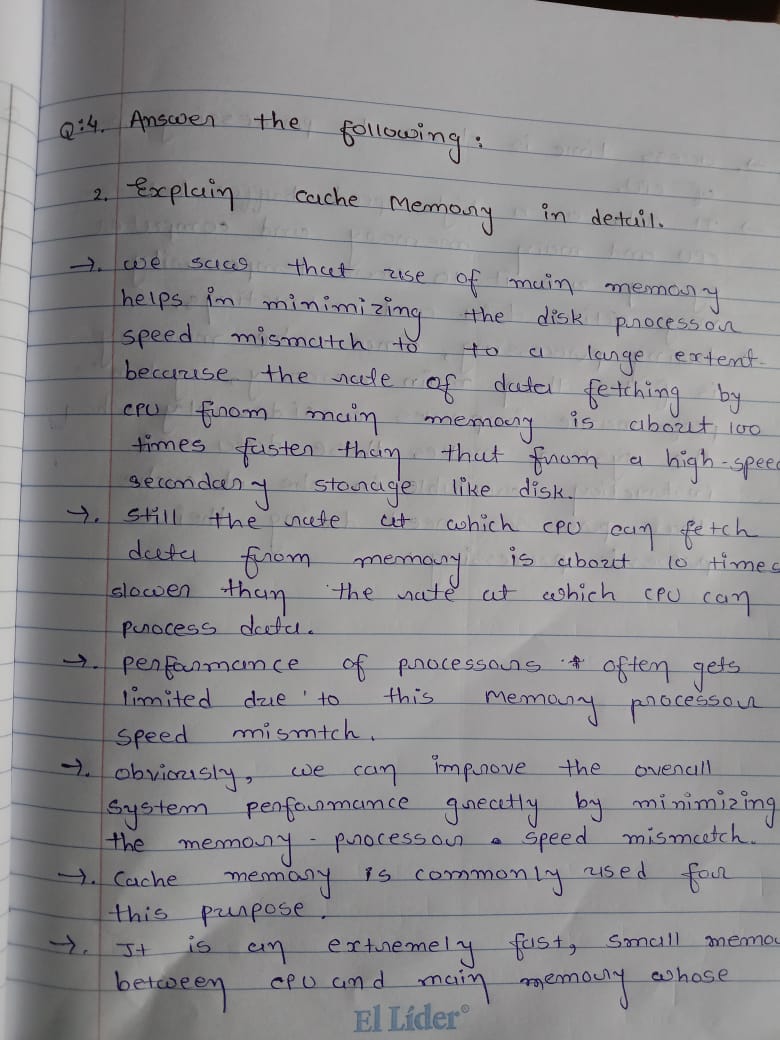 Q:4. Answer the following:
2. Explain cache Memory in detail.
→. we saw that use of main memory
helps in minimizing the disk processor
speed mismatch to to a large extent.
because the rate of data fetching by
CPU from main memory is about 100
times faster than that from a high-speed
secondary storage like disk.
→. still the rate at which CPU can fetch
data from memory is about 10 times
slower than the rate at which CPU can
process data.
→. performance of processors often gets
limited due to this memory processor
speed mismtch.
→. obviously, we can improve the overall
system performance greatly by minimizing
the memory - processor speed mismatch.
→. Cache memory is commonly used for
this purpose.
→. It is an extremely fast, small memo
between CPU and main memory whose
El Líder®